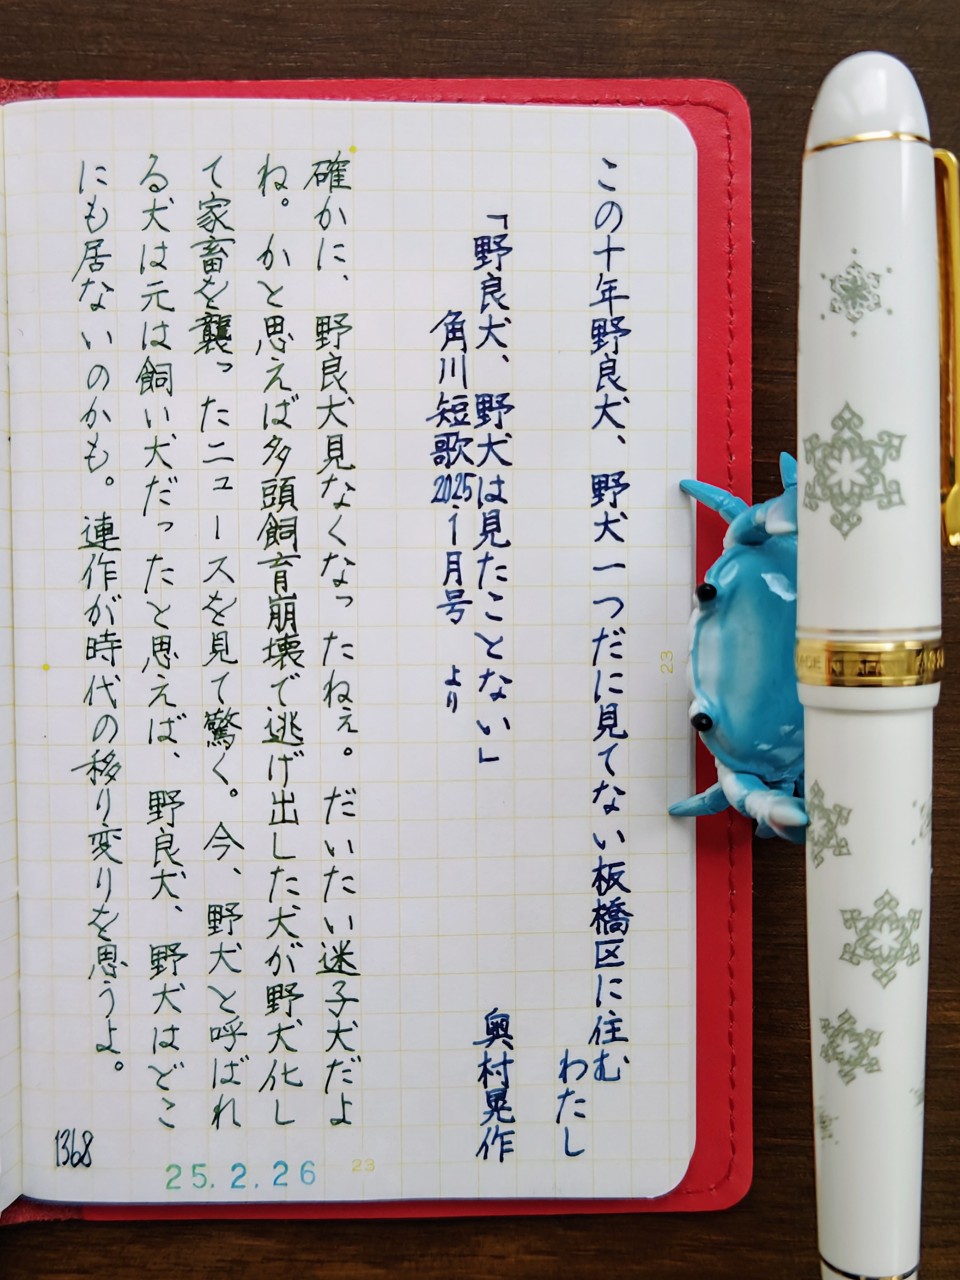 この十年野良犬、野犬一つだに見てない板橋区に住む
わたし
「野良犬、野犬は見たことない」
奥村晃作
角川短歌2025.1月号 より
確かに、野良犬見なくなったねぇ。だいたい迷子犬だよ
ね。かと思えば多頭飼育崩壊で逃げ出した犬が野犬化し
て家畜を襲ったニュースを見て驚く。今、野犬と呼ばれ
る犬は元は飼い犬だったと思えば、野良犬、野犬はどこ
にも居ないのかも。連作が時代の移り変りを思うよ。
1368
25.2.26
23
23